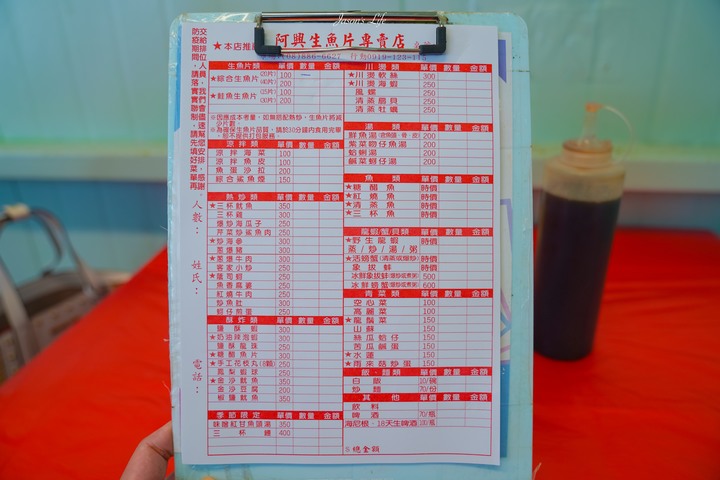 Jason's Life
阿興生魚片專賣店
★本店推
生魚片類 單價 數量 金額
★綜合生魚片 (20片) 100
(40片) 200
★鮭魚生魚片 (15片) 100
(30片) 200
涼拌類 單價 數量 金額
涼拌海菜 100
涼拌魚皮 100
魚蛋沙拉 200
綜合鯊魚煙 150
熱炒類 單價 數量 金額
★三杯魷魚 350
三杯雞 300
爆炒海瓜子 250
芹菜炒鯊魚肉 250
★炒海參 300
蔥爆豬 300
★蔥爆牛肉 300
客家小炒 250
★蘆筍蝦 250
魚香腐瓷 250
紅燒牛肉 250
炒魚肚 300
蚵仔煎蛋 250
酥炸類 單價 數量 金額
鹽酥蝦 300
★奶油辣泡蝦 300
鹽酥龍珠 250
★糖醋魚片 300
★手工花枝丸(8顆) 250
鳳梨蝦球 250
★金沙魷魚 350
金沙豆腐 200
椒鹽魷魚 350
季節限定 單價 數量 金額
味噌紅甘魚頭湯 350
三杯 400
川燙類 單價 數量 金額
★川燙軟絲 300
★川燙海蝦 250
風螺 250
清蒸扇貝 250
清蒸牡蠣 250
湯類 單價 數量 金額
鮮魚湯 200
紫菜魩仔魚湯 200
蛤蜊湯 200
鹹菜蚵仔湯 200
魚類 單價 數量 金額
★糖醋魚 時價
★紅燒魚 時價
★清蒸魚 時價
★三杯魚 時價
龍蝦/蟹/貝類 單價 數量 金額
★野生龍蝦 時價
蒸/炒/湯/粥
★活螃蟹(清蒸或爆炒) 時價
象拔蚌 時價
冰鮮象拔蚌 500
冰鮮螃蟹 600
青菜類 單價 數量 金額
空心菜 100
高麗菜 100
★龍鬚菜 150
山蘇 150
絲瓜蚵仔 150
苦瓜鹹蛋 150
★水蓮 150
★雨來菇炒蛋 150
飯、麵類 單價 數量 金額
白飯 10/碗
炒麵 70/份
其他 單價 數量 金額
飲料
啤酒 70/瓶
海尼根、18天生啤酒
$總金額
人數：
姓氏：
電話：